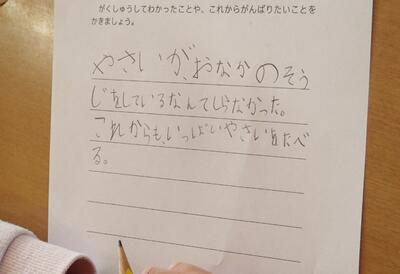 がくしゅうしてわかったことや、これからがんばりたいことを
かきましょう。
やさいが、おなかのそう
じをしているなんてしらなかった。
これからも、いっぱいやさいをたべ
る。